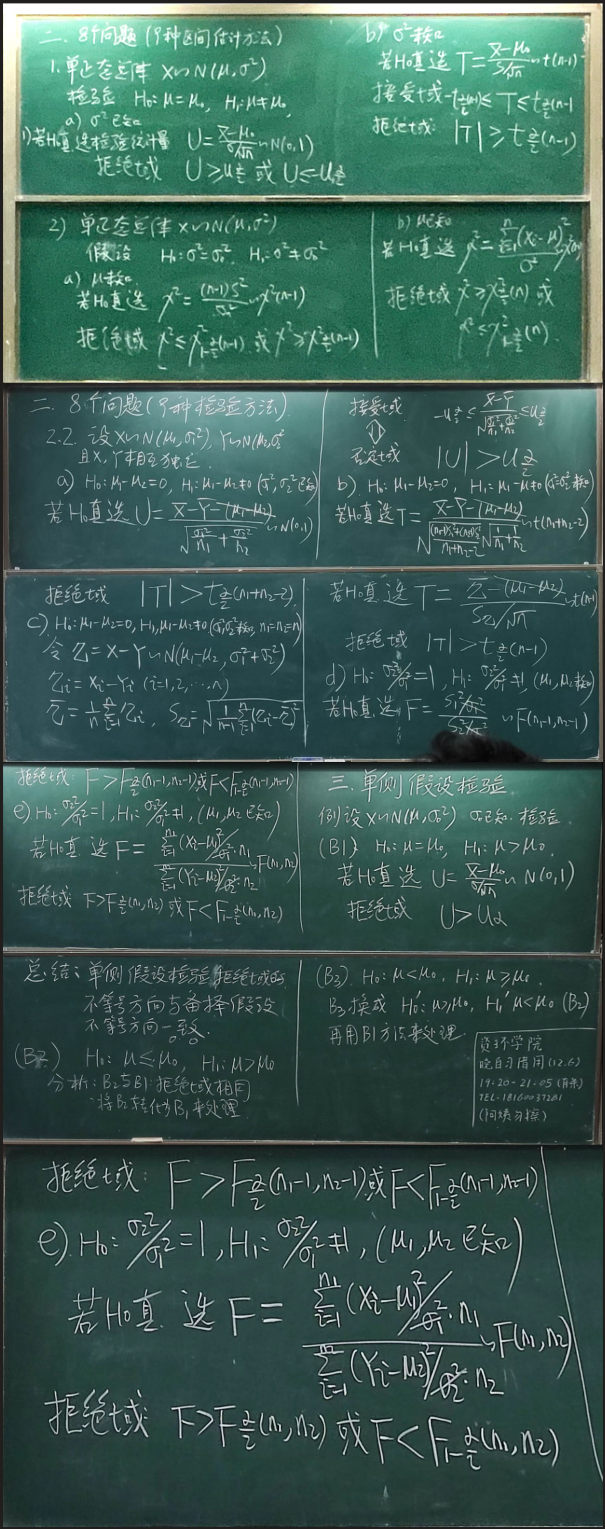 二. 8个问题(9种区间估计方法)
1. 单正态总体 X~N(μ,σ²)
检验 H₀: μ=μ₀, H₁: μ≠μ₀
a) σ²已知
1) 若H₀真 选检验统计量 U=(X̄-μ₀)/(σ/√n) ~N(0,1)
拒绝域 U≥u_{α/2} 或 U≤-u_{α/2}
b) σ²未知
若H₀真 选 T=(X̄-μ₀)/(S/√n) ~t(n-1)
接受域 -t_{α/2}(n-1)≤T≤t_{α/2}(n-1
拒绝域: |T|≥t_{α/2}(n-1)
2) 单正态总体 X~N(μ,σ²)
假设 H₀: σ²=σ₀², H₁: σ²≠σ₀²
a) μ未知
若H₀真 选 χ²=(n-1)S²/σ² ~χ²(n-1)
拒绝域 χ²≤χ²_{1-α/2}(n-1) 或 χ²≥χ²_{α/2}(n-1)
b) μ已知
若H₀真 选 χ²=∑_{i=1}^{n}(Xi-μ)²/σ² ~χ²(n)
拒绝域 χ²≥χ²_{α/2}(n) 或
χ²≤χ²_{1-α/2}(n).
二. 8个问题(9种检验方法)
2.2. 设X~N(μ₁,σ₁²), Y~N(μ₂,σ₂²
且X, Y相互独立.
a) H₀: μ₁-μ₂=0, H₁: μ₁-μ₂≠0 (σ₁²,σ₂²已知)
若H₀真选 U=(X̄-Ȳ-(μ₁-μ₂))/√(σ₁²/n₁+σ₂²/n₂) ~N(0,1)
接受域 -u_{α/2}≤(X̄-Ȳ)/√(σ₁²/n₁+σ₂²/n₂)≤u_{α/2}
⇕
否定域 |U|>u_{α/2}
b). H₀: μ₁-μ₂=0, H₁: μ₁-μ₂≠0 (σ₁²=σ₂²未知)
若H₀真选 T=(X̄-Ȳ-(μ₁-μ₂))/(√(((n₁-1)S₁²+(n₂-1)S₂²)/(n₁+n₂-2))√(1/n₁+1/n₂)) ~t(n₁+n₂-2)
拒绝域 |T|>t_{α/2}(n₁+n₂-2)
c) H₀: μ₁-μ₂=0, H₁, μ₁-μ₂≠0 (σ₁²,σ₂²未知, n₁=n₂=n)
令 Z=X-Y~N(μ₁-μ₂, σ₁²+σ₂²)
Zi=Xi-Yi (i=1,2,…,n)
Z̄=1/n ∑_{i=1}^{n} Zi, S_Z=√(1/(n-1) ∑_{i=1}^{n}(Zi-Z̄)²)
若H₀真 选 T=(Z̄-(μ₁-μ₂))/(S_Z/√n) ~t(n-1)
拒绝域 |T|>t_{α/2}(n-1)
d) H₀: σ₂²/σ₁²=1, H₁: σ₂²/σ₁²≠1, (μ₁,μ₂未知)
若H₀真 选 F=(S₁²/σ₁²)/(S₂²/σ₂²) ~F(n₁-1,n₂-1)
拒绝域: F>F_{α/2}(n₁-1,n₂-1)或F<F_{1-α/2}(n₁-1,n₂-1)
e) H₀: σ₂²/σ₁²=1, H₁: σ₂²/σ₁²≠1, (μ₁,μ₂已知)
若H₀真 选 F=(∑_{i=1}^{n₁}(Xi-μ₁)²/σ₁²·n₁)/(∑_{i=1}^{n₂}(Yi-μ₂)²/σ₂²·n₂) ~F(n₁,n₂)
拒绝域 F>F_{α/2}(n₁,n₂) 或 F<F_{1-α/2}(n₁,n₂)
三. 单侧假设检验
例 设X~N(μ,σ₀²) σ₀已知. 检验.
(B1) H₀: μ=μ₀, H₁: μ>μ₀.
若H₀真 选 U=(X̄-μ₀)/(σ₀/√n) ~N(0,1)
拒绝域 U>uα
总结: 单侧假设检验拒绝域的
不等号方向与备择假设
不等号方向一致.
(B2) H₀: μ≤μ₀, H₁: μ>μ₀
分析: B2与B1: 拒绝域相同
将B2转化为B1来处理
(B3). H₀: μ<μ₀, H₁: μ≥μ₀.
B3换成 H₀′: μ≥μ₀, H₁′ μ<μ₀ (B2)
再用B1方法来处理
资环学院
晚自习借用(12.6)
19:20-21:05
TEL-18160037261
拒绝域: F>F_{α/2}(n₁-1,n₂-1)或F<F_{1-α/2}(n₁-1,n₂-1)
e). H₀: σ₂²/σ₁²=1, H₁: σ₂²/σ₁²≠1, (μ₁,μ₂已知)
若H₀真 选 F=(∑_{i=1}^{n₁}(Xi-μ₁)²/σ₁²·n₁)/(∑_{i=1}^{n₂}(Yi-μ₂)²/σ₂²·n₂) ~F(n₁,n₂)
拒绝域 F>F_{α/2}(n₁,n₂) 或 F<F_{1-α/2}(n₁,n₂)